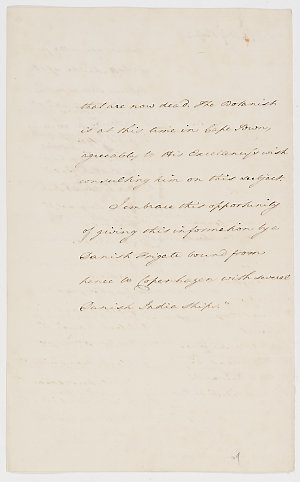 that are now dead. The Botanist
is at this time in Cape Town,
agreeably to His Excellency's wish
consulting him on this subject.
I embrace this opportunity
of giving this information by a
Danish Frigate bound from
hence to Copenhagen with several
Danish India Ships."